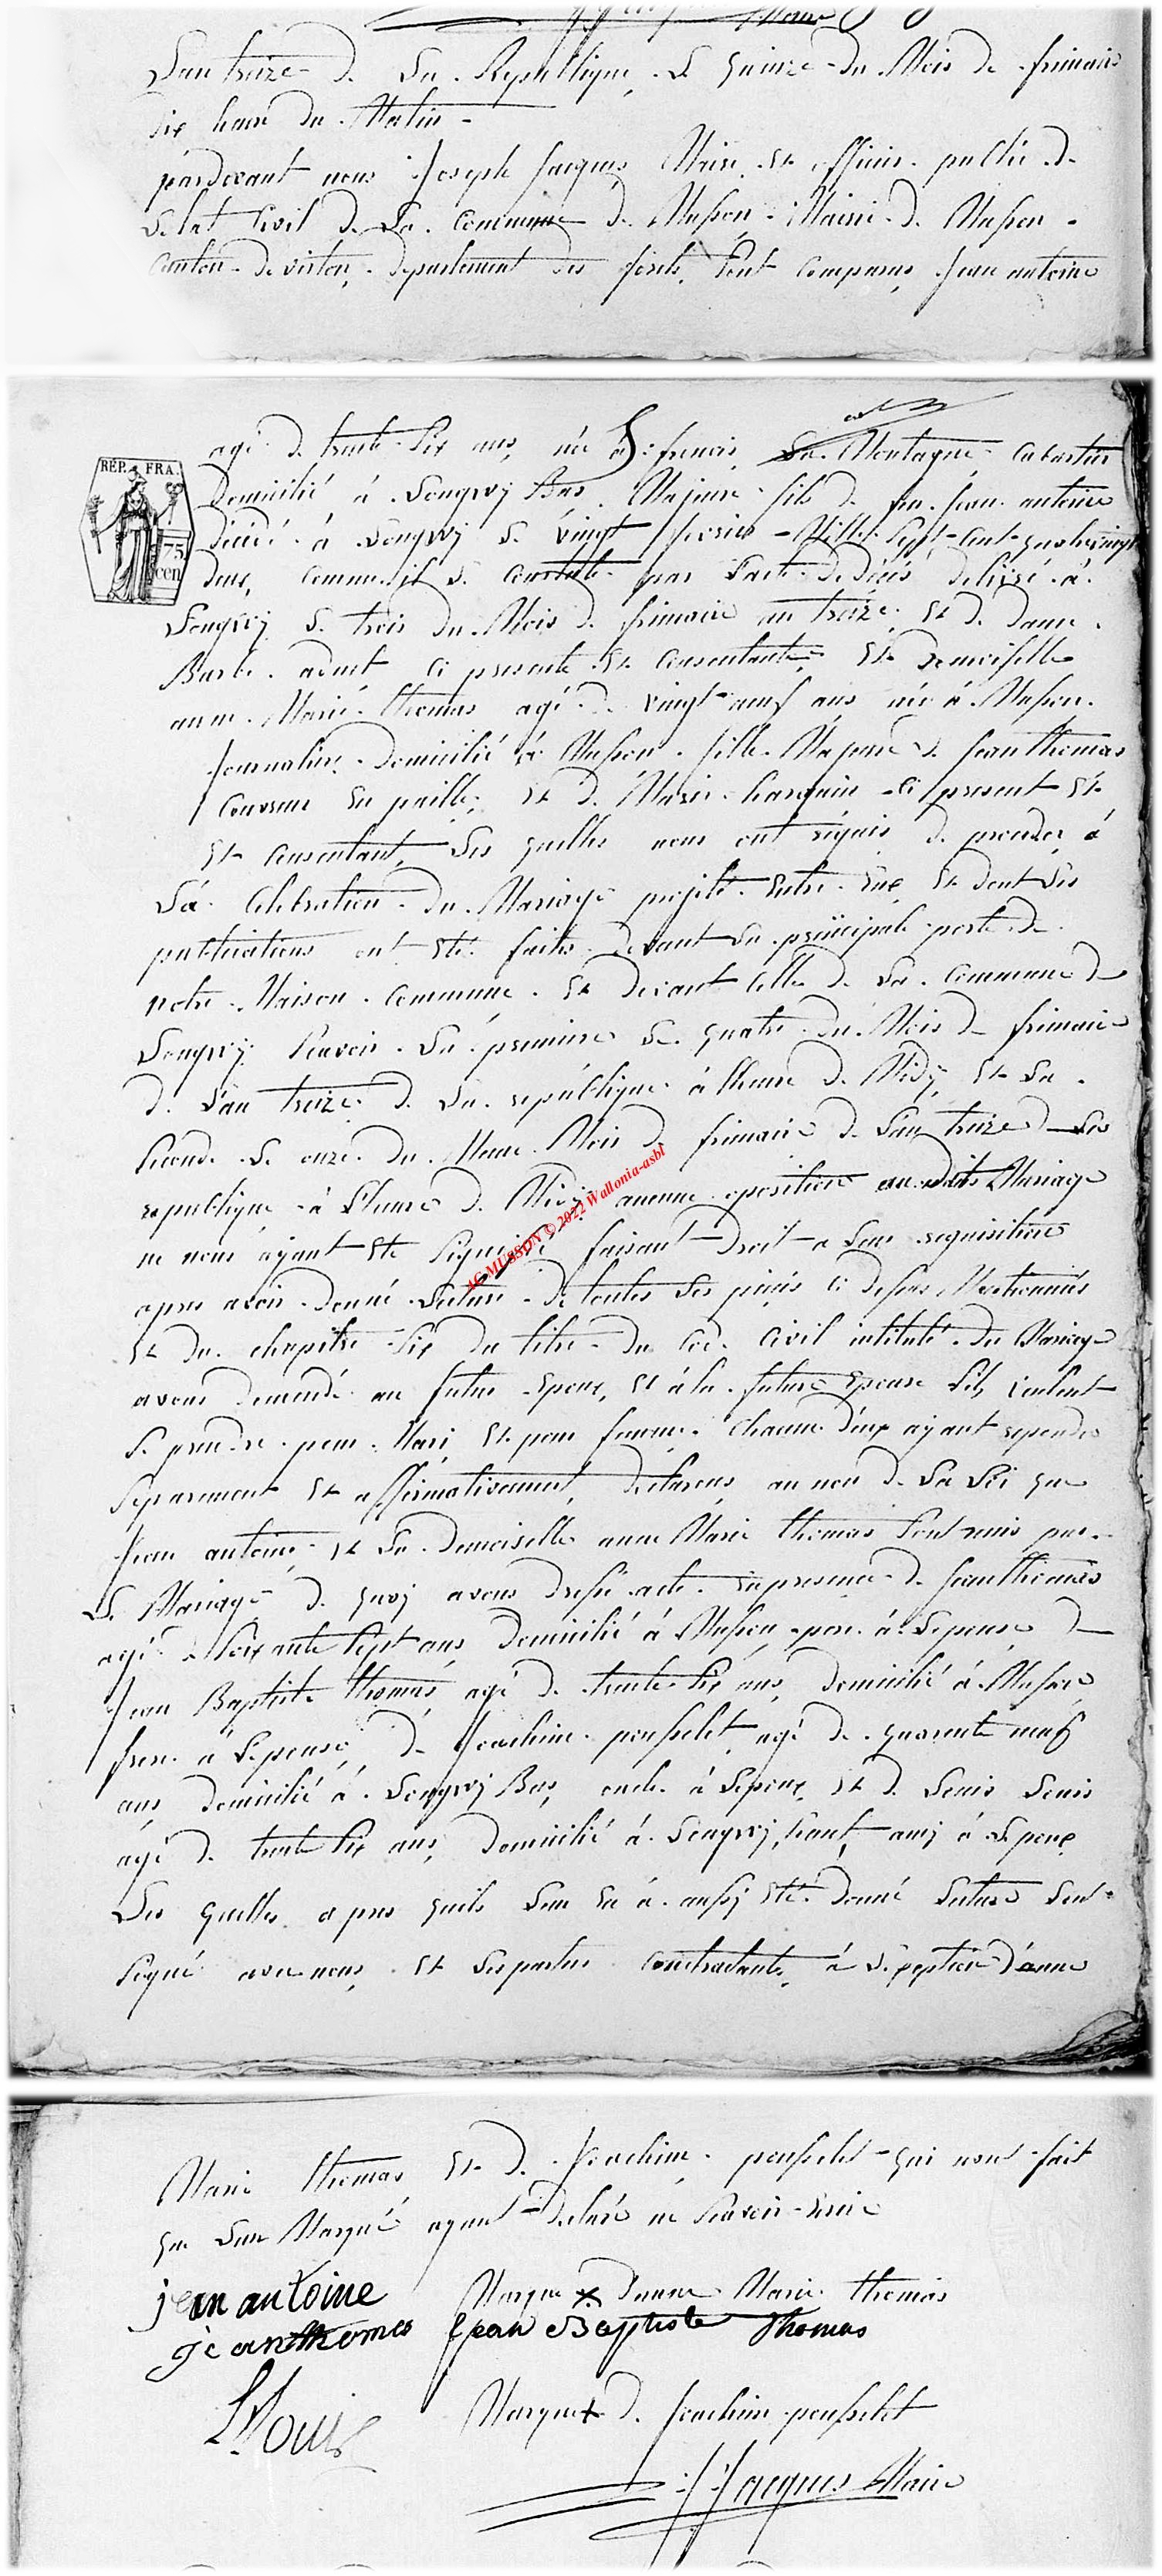 Maire
Lan treize de La Republique Le quinze du Mois de frimaire
dix heure du Matin
pardevant nous Joseph Jacques Maire et officier public de
Letat Civil de La Commune de Musson Mairie de Musson
Canton de virton departement des forets Sont Comparus Jean antoine
agé de trente Six ans née à St francois La Montagne Cabartier
Domicilié à Longwy Bas Majeure fils de feu Jean antoine
décédé à Longwy Le vingt fevrier Mille Sept Cent quatrevingt
deux, comme il Le Constate par Lacte de décés délivré à
Longwy Le trois du Mois de frimaire an treize et de dame
Barbe adnet Ci presente et Consentante et demoiselle
anne Marie thomas agé de vingt neuf ans née à Musson
Journaliere Domicilié à Musson fille Majeure de Jean thomas
Couvreur En paille et de Marie Ci present et
et Consentant Les quelles nous ont réquis de proceder à
La Celebration du Mariage projeté Entre Eux et dont Les
publications ont Eté faites devant La principale porte de
notre Maison Commune et devant Celle de La Commune de
Longwy Scavoir La premiere Le quatre du Mois de frimaire
de Lan treize de La republique à lheure de Midy et La
Seconde Le onze du Meme Mois de frimaire de Lan treize de La
republique à Lheure de Midy aucunne oposition audit Mariage
ne nous ayant Eté Signifié faisant Droit a Leur requisition
apres avoir donné Lecture de toutes Les pieces Ci dessus Mentionnées
et du chapitre Six du titre du Code Civil intitulé du Mariage
avons demandé au futur Epoux et à la future Epouse Sils veulent
Se prendre pour Mari et pour femme Chacun d'eux ayant repondu
Separement et affirmativement declarons au nom de La Loi que
Jean antoine et La Demoiselle anne Marie thomas Sont unis par
Le Mariage de quoy avons dressé acte En presence de Jean thomas
agé de Soixante Sept ans Domicilié à Musson pere à Lepouse de
Jean Baptiste thomas agé de trente Six ans Domicilié à Musson
frere à Lepouse, de Joachim pousselet agé de quarente neuf
ans Domicilié à Longwy Bas, oncle à Lepoux et de Louis Louis
agé de trente Six ans Domicilié à Longwy haut, amy à Lepoux
Les quelles apres quils Leur En à aussy Eté donné Lecture Lont
Signé avec nous et Les parties Contractantes à Lexeption d'anne
AC MUSSON © 2022 Wallonia-asbl
REP. FRA.
75
cen
Marie thomas et de Joachim pousselet qui nont fait
que Leur Marque ayant declaré ne Scavoir Ecrire
jean antoine Marque x Danne Marie thomas
jean thomas Jean Baptiste Thomas
L Louis Marque x de Joachim pousselet
J Jacques Maire